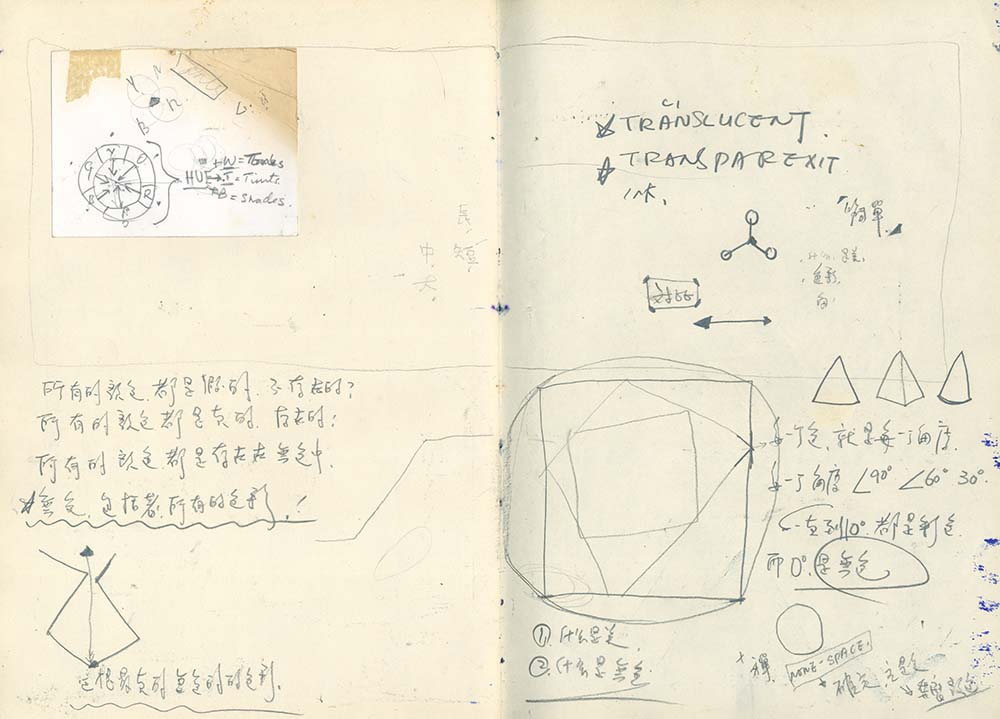 Y
B
R
HUE
+W = Tones
= Tints.
+B = Shades.
Y
O
R
G
長
短
中
大
所有的顏色都是假的.不存在的?
所有的顏色都是真的.存在的?
所有的顏色.都是存在在無色中.
無色,包括著所有的色彩.!
是真的無色的的色彩.
TRANSLUCENT.
TRANSPAREXIT
INK.
「簡單」
什么是美.
色彩.
每一个色,就是每一个角度.
每一个角度 ∠90° ∠60° 30°.
一直到10°.都是彩色.
而0°.是無色
① 什么是美.
② 什么是無色.
禪.
NONE-SPACE.
確定主題
無色